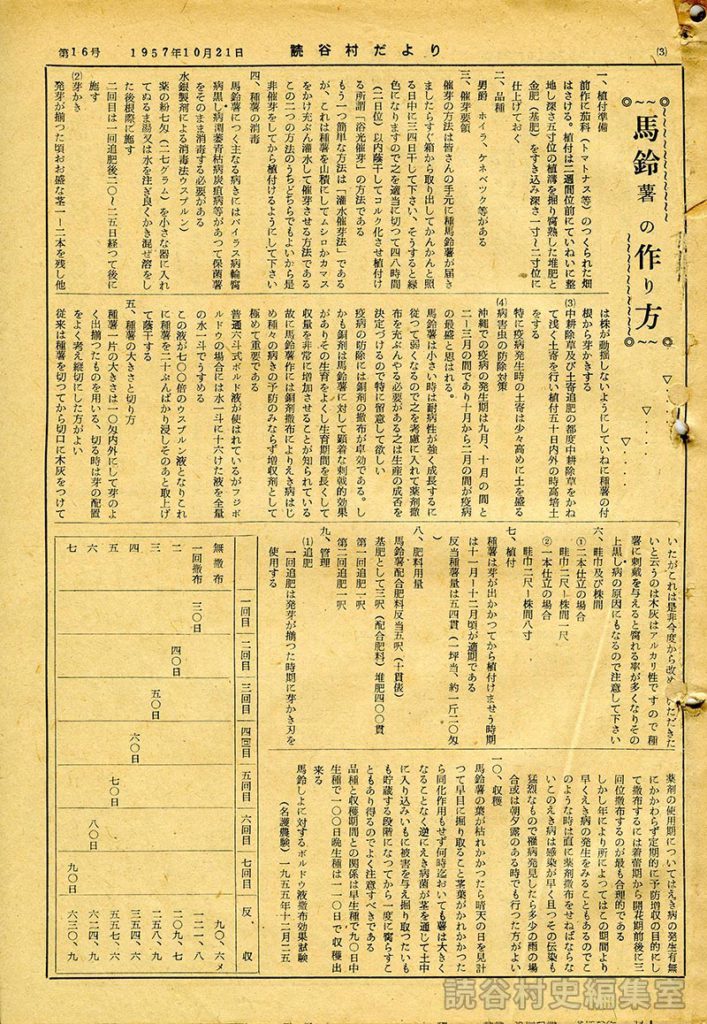 第16号 1957年10月21日 読谷村だより (3)
馬鈴薯の作り方
一、植付準備
前作に茄科(トマトナス等)のつくられた畑
はさける。植付は二週間位前にていねいに整
地し深さ五寸位の植溝を掘り腐熟した堆肥と
金肥(基肥)をすき込み深さ一寸~二寸位に
仕上げておく
二、品種
男爵 ホイラ、ケネベツク等がある
三、催芽要領
催芽の方法は皆さんの手元に種馬鈴薯が届き
ましたらすぐ箱から取り出してかんかんと照
る日中に三四日干して下さい、そうすると緑
色になりますので之を適当に切つて四八時間
(二日位)以内蔭干してコルク化させ植付け
る所謂「浴光催芽」の方法である
もう一つ簡単な方法は「灌水催芽法」である
が、これは種薯を山積にしてムシロかカマス
をかけ充ぶん灌水して催芽させる方法である
この二つの方法のうちどちらでもよいから是
非催芽をしてから植付けるようにして下さい
四、種薯の消毒
馬鈴薯につく主なる病きにはバイラス病輪腐
病黒し病凋萎青枯病炭疽病等があつて保菌薯
をそのまま消毒する必要がある
水銀製剤による消毒法ウスプルン)
薬の粉七匁(二七グラム)を小さな器に入れ
てぬるま湯又は水を注ぎ良くかき混ぜ溶をし
た後根際に施す
二回目は一回追肥後二〇~二五日経つて後に
施す
(2)芽かき
発芽が揃つた頃おお盛な茎一~二本を残し他
は株が動揺しないようにしていねに種薯の付
根から芽かきする
(3)中耕除草及び土寄追肥の都度中耕除草をかね
て浅く土寄を行い植付五十日内外の時高培土
をする
特に疫病発生時の土寄は少々高めに土を盛る
(4)病害虫の防除対策
沖縄での疫病の発生期は九月、十月の間と
二ー三月の間であり十月から二月の間が疫病
の最盛と思はれる。
馬鈴薯は小さい時は耐病性が強く成長するに
従つて弱くなるので之を考慮に入れて薬剤撒
布を充ぶんやる必要がある之は生産の成否を
決定づけるので特に留意して欲しい
疫病の防除には銅剤の撒布が卓効である。し
かも銅剤は馬鈴薯に対して顕着な刺戟的効果
がありその生育をよくし生育期間を長くして
収量を非常に増加させることが知られている
故に馬鈴薯作には銅剤撒布によりえき病はじ
め種々の病きの予防のみならず増収剤として
極めて重要である
普通六斗式ボルド液が使はれているがフジボ
ルドウの場合には水一斗に十六けた液を全量
の水一斗でうすめる
この液が七〇〇倍のウスプルン液となりこれ
に種薯を二十ぷんばかり浸しそのあと取上げ
て蔭干する
五、種薯の大きさと切り方
種薯一片の大きさは一〇匁内外にして芽のよ
く出揃つたものを用いる、切る時は芽の配置
をよく考え縦切にした方がよい
従来は種薯を切つてから切口に木灰をつけて
いたがこれは是非今度から改め いただきた
いと云うのは木灰はアルカリ性ですので種
薯に刺戟を与えると腐れる率が多くなりその
上黒し病の原因にもなるので注意して下さい
六、畦巾及び株間
①二本仕立の場合
畦巾二尺ー株間一尺
②一本仕立の場合
畦巾二尺ー株間八寸
七、植付
種薯は芽が出かかつてから植付けませう時期
は十一月ー十二月頃が適期である
反当種薯量は五四貫(一坪当、約一斤二〇匁
)
八、肥料用量
馬鈴薯配合肥料反当五呎(十貫俵)
基肥として三呎(配合肥料)堆肥四〇〇貫
第一回追肥一呎
第二回追肥一呎
九、管理
(1)追肥
一回追肥は発芽が揃つた時期に芽かき刃を
使用する
薬剤の使用期についてはえき病の発生有無
にかかわらず定期的に予防増収の目的にし
て撒布するには着蕾期から開花期前後に三
回位撒布するのが最も合理的である
しかし年により所によつてはこの期間より
早くえき病の発生をみることもあるのでこ
のような時は直に薬剤撒布をせねばならな
いこのえき病は感染が早く且つその伝染も
猛烈なもので罹病発見したら多少の雨の場
合或は朝夕露のある時でも行つた方がよい
一〇、収穫
馬鈴薯の葉が枯れかかつたら晴天の日を見計
つて早目に掘り取ること茎葉がかれかかつた
ら同化作用もせず何時迄おいても薯は大きく
なることなく逆にえき病菌が茎を通じて土中
に入り込みいもに被害を与え掘り取つたいも
も貯蔵する段階になつてから一度に腐らすこ
ともあり得るのでよく注意すべきである
品種と収穫期間との関係は早生種で九〇日中
生種で一〇〇日晩生種で一一〇日で収穫出
来る
馬鈴しよに対するボルドウ液撒布効果試験
(名護農験)一九五五年十二月二五
一回目 二回目 三回目 四回目 五回目 六回目 七回目 反、収
無撒布 九〇、六〆
一回撒布 三〇日 一二一、八
二 四〇日 二〇九、七
三 五〇日 二五八、九
四 六〇日 三五四、六
五 七〇日 五五七、六
六 八〇日 六二四、九
七 九〇日 六三〇、九
読谷村史編集室